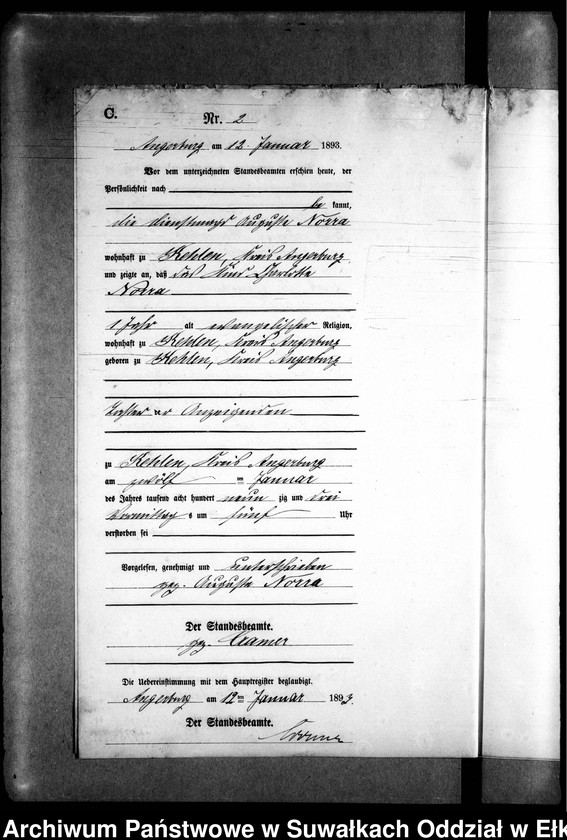 C.
Nr. 2
Angerburg am 12. Januar 1893.
Vor dem unterzeichneten Standesbeamten erschien heute, der
Persönlichkeit nach
be kannt,
die Dienstmagd Auguste Norra
wohnhaft zu Kehlen, Kreis Angerburg
und zeigte an, daß das Kind Charlotte
Norra
1 Jahr alt evangelischer Religion,
wohnhaft zu Kehlen, Kreis Angerburg
geboren zu Kehlen, Kreis Angerburg
Tochter der Anzeigenden
zu Kehlen, Kreis Angerburg
am zwölf ten Januar
des Jahres tausend acht hundert neun zig und drei
Vormittag s um fünf Uhr
verstorben sei
Vorgelesen, genehmigt und unterschrieben
gez. Auguste Norra
Der Standesbeamte.
gez. Cramer
Die Uebereinstimmung mit dem Hauptregister beglaubigt.
Angerburg am 12ten Januar 1893.
Der Standesbeamte.
Cramer
Archiwum Państwowe w Suwałkach Oddział w Ełk